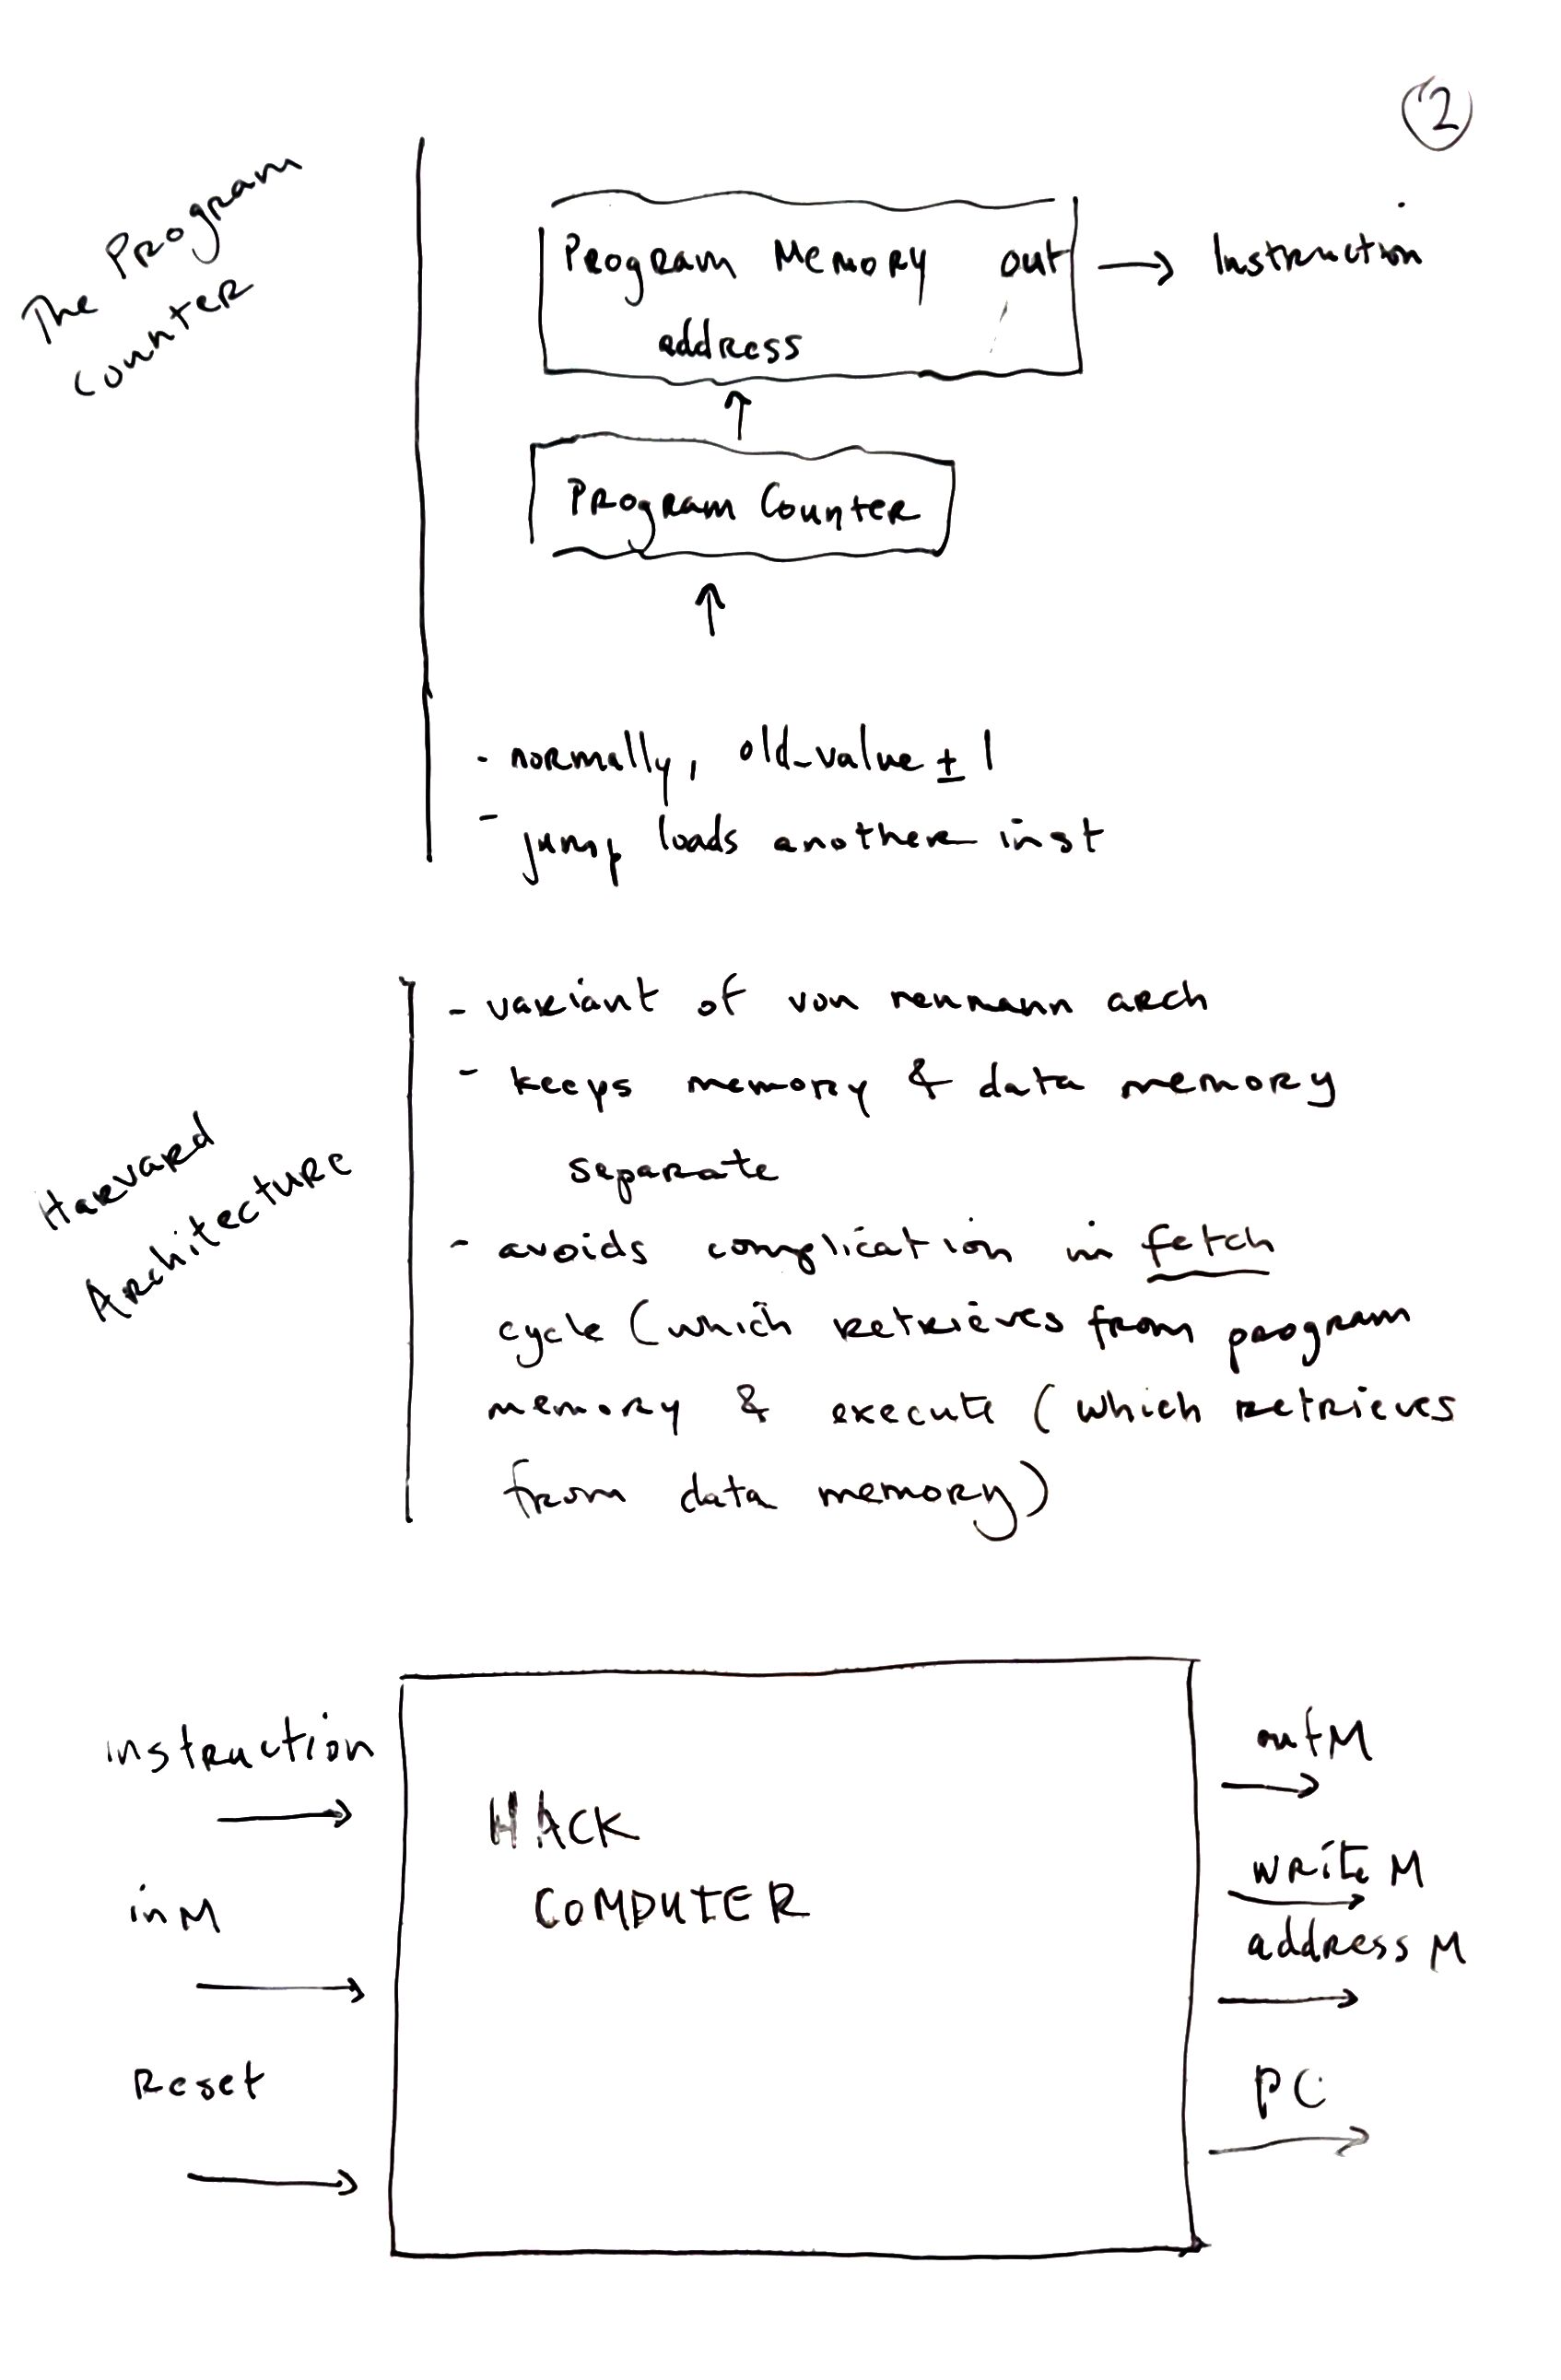 2
The Program
Counter
Program Memory out
address
→ Instruction
Program Counter
- normally, old_value ± 1
- jump loads another inst
Harvard
Architecture
- variant of von neumann arch
- keeps memory & data memory
separate
- avoids complication in fetch
cycle (which retrieves from program
memory & execute (which retrieves
from data memory)
HACK
COMPUTER
Instruction
inM
Reset
outM
writeM
addressM
PC